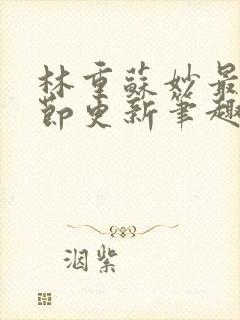 林重蘇妙最
節更新筆趣
洇紫